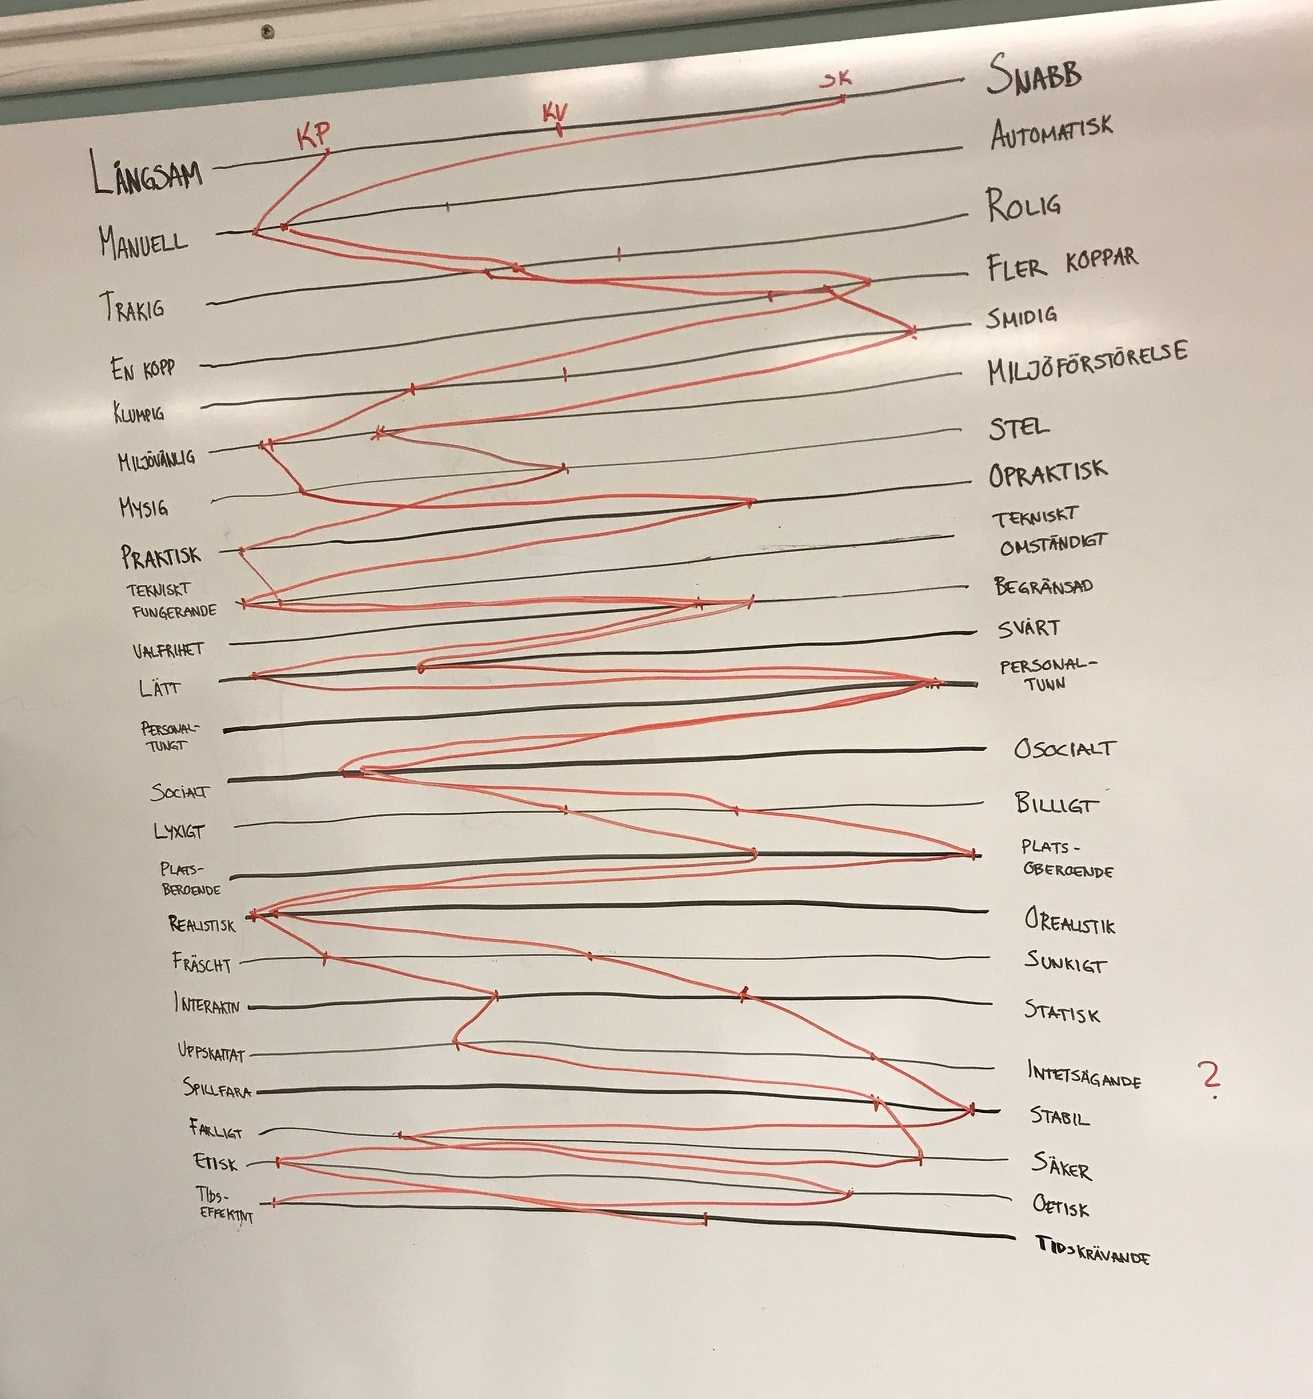 KP KV SK
LÅNGSAM SNABB
MANUELL AUTOMATISK
TRÅKIG ROLIG
EN KOPP FLER KOPPAR
KLUMPIG SMIDIG
MILJÖVÄNLIG MILJÖFÖRSTÖRELSE
MYSIG STEL
PRAKTISK OPRAKTISK
TEKNISKT TEKNISKT
FUNGERANDE OMSTÄNDIGT
VALFRIHET BEGRÄNSAD
LÄTT SVÅRT
PERSONAL- PERSONAL-
TUNGT TUNN
SOCIALT OSOCIALT
LYXIGT BILLIGT
PLATS- PLATS-
BEROENDE OBEROENDE
REALISTISK OREALISTIK
FRÄSCHT SUNKIGT
INTERAKTIV STATISK
UPPSKATTAT INTETSÄGANDE ?
SPILLFARA STABIL
FARLIGT SÄKER
ETISK OETISK
TIDS- TIDSKRÄVANDE
EFFEKTIVT